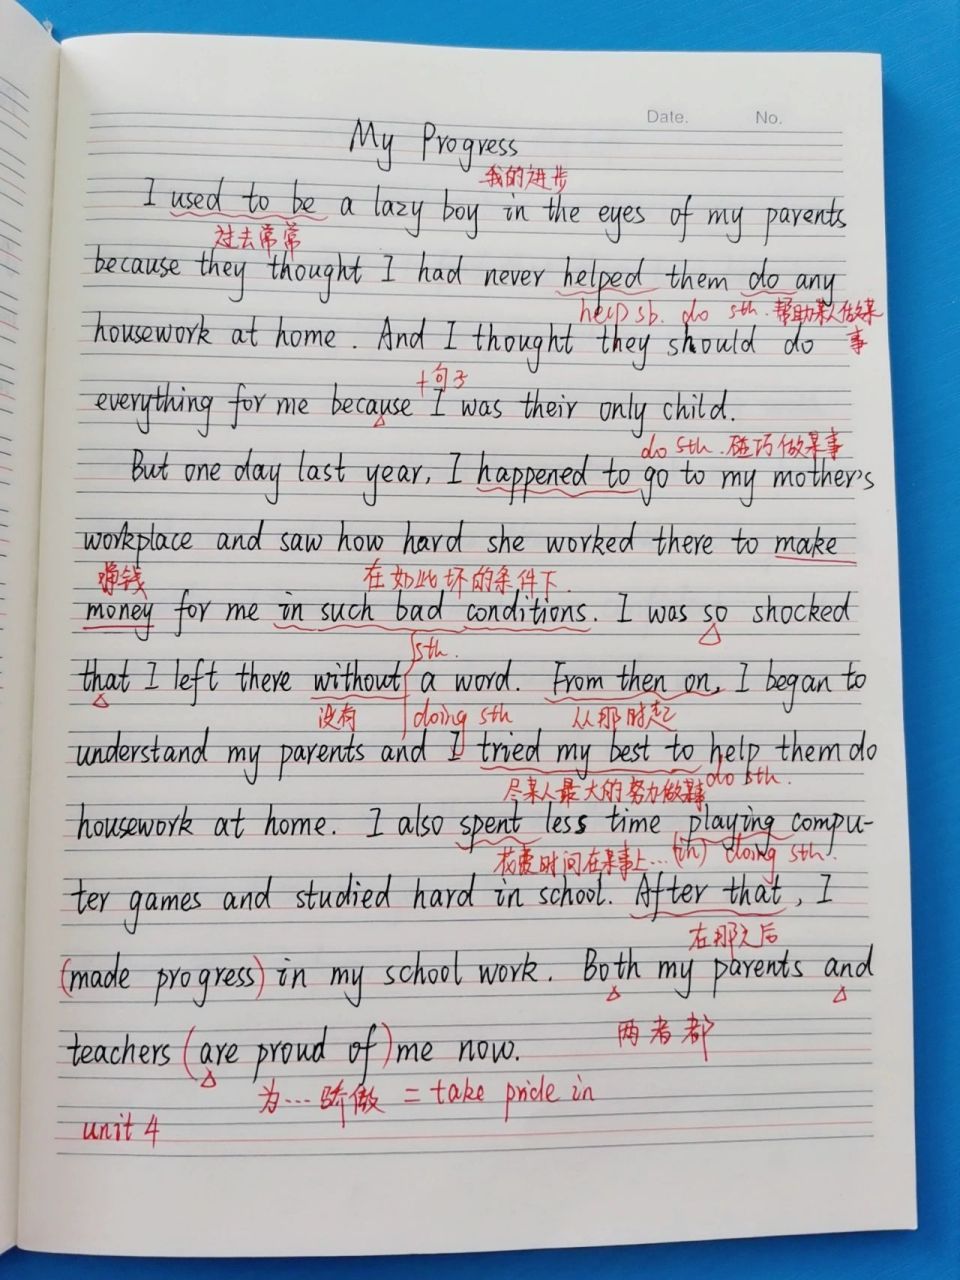 Date. No.
My Progress
我的进步
I used to be a lazy boy in the eyes of my parents
过去常常
because they thought I had never helped them do any
help sb. do sth. 帮助某人做某
事
housework at home. And I thought they should do
+句子
everything for me because I was their only child.
do sth. 碰巧做某事
But one day last year, I happened to go to my mother's
workplace and saw how hard she worked there to make
挣钱 在如此坏的条件下
money for me in such bad conditions. I was so shocked
sth.
that I left there without a word. From then on, I began to
没有 doing sth 从那时起
understand my parents and I tried my best to help them do
尽某人最大的努力做某事 do sth.
housework at home. I also spent less time playing compu-
花费时间在某事上... (in) doing sth.
ter games and studied hard in school. After that, I
在那之后
(made progress) in my school work. Both my parents and
两者都
teachers (are proud of) me now.
为...骄傲 = take pride in
unit 4